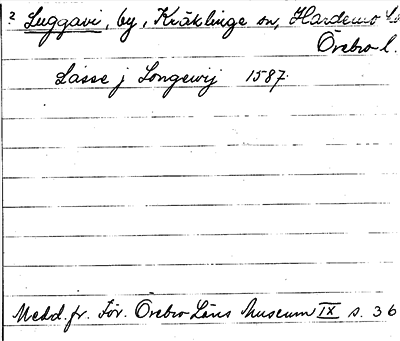 ? Luggavi, by, Kräklinge sn, Hardemo
Örebro l.
Lasse j Longewij 1587.
Medd. fr. För. Örebro Läns Museum IX s. 36